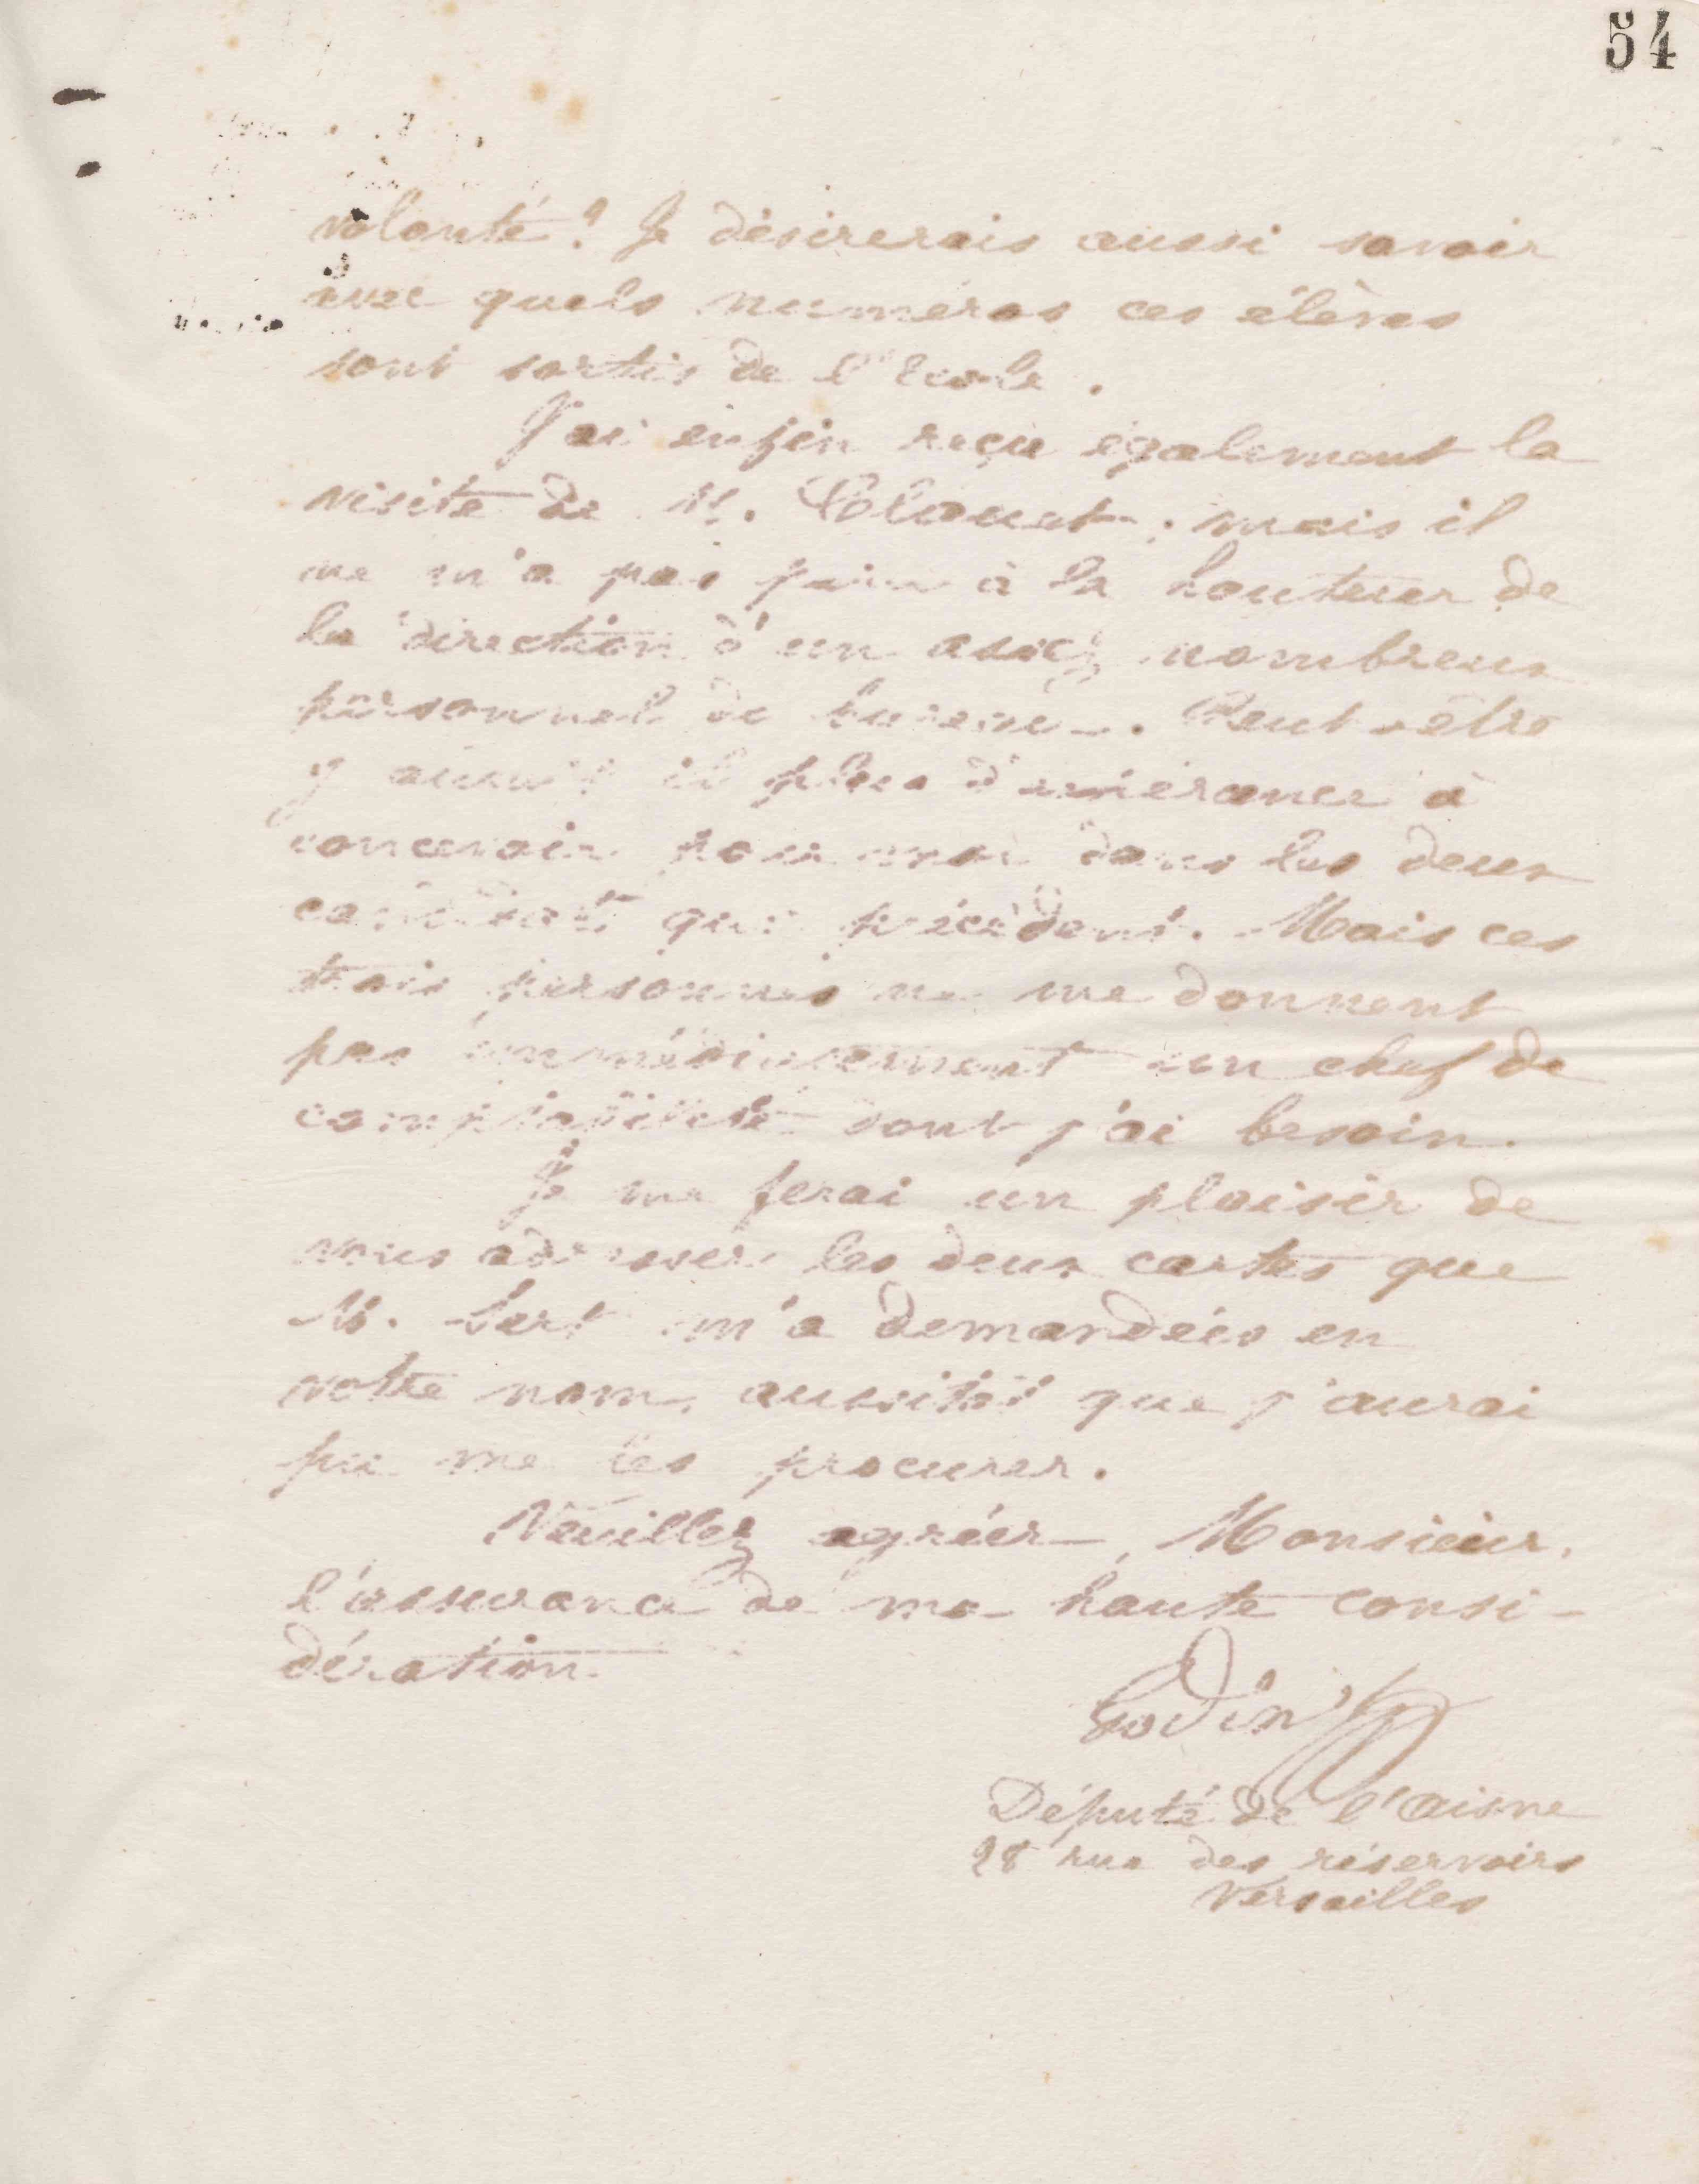 54
volonté? Je désirerais aussi savoir
avec quels numéros ces élèves
sont sortis de l'Ecole.
J'ai enfin reçu également la
visite de M. Clouet; mais il
ne m'a pas paru à la hauteur de
la direction d'un assez nombreux
personnel de bureau. Peut-être
y aurait il plus d'espérance à
concevoir pour moi dans les deux
candidats qui précèdent. Mais ces
trois personnes ne me donnent
pas immédiatement un chef de
comptabilité dont j'ai besoin.
Je me ferai un plaisir de
vous adresser les deux cartes que
M. m'a demandées en
votre nom, aussitôt que j'aurai
pu me les procurer.
Veuillez agréer, Monsieur,
l'assurance de ma haute consi-
dération.
Godin
Député de l'Aisne
28 rue des réservoirs
Versailles